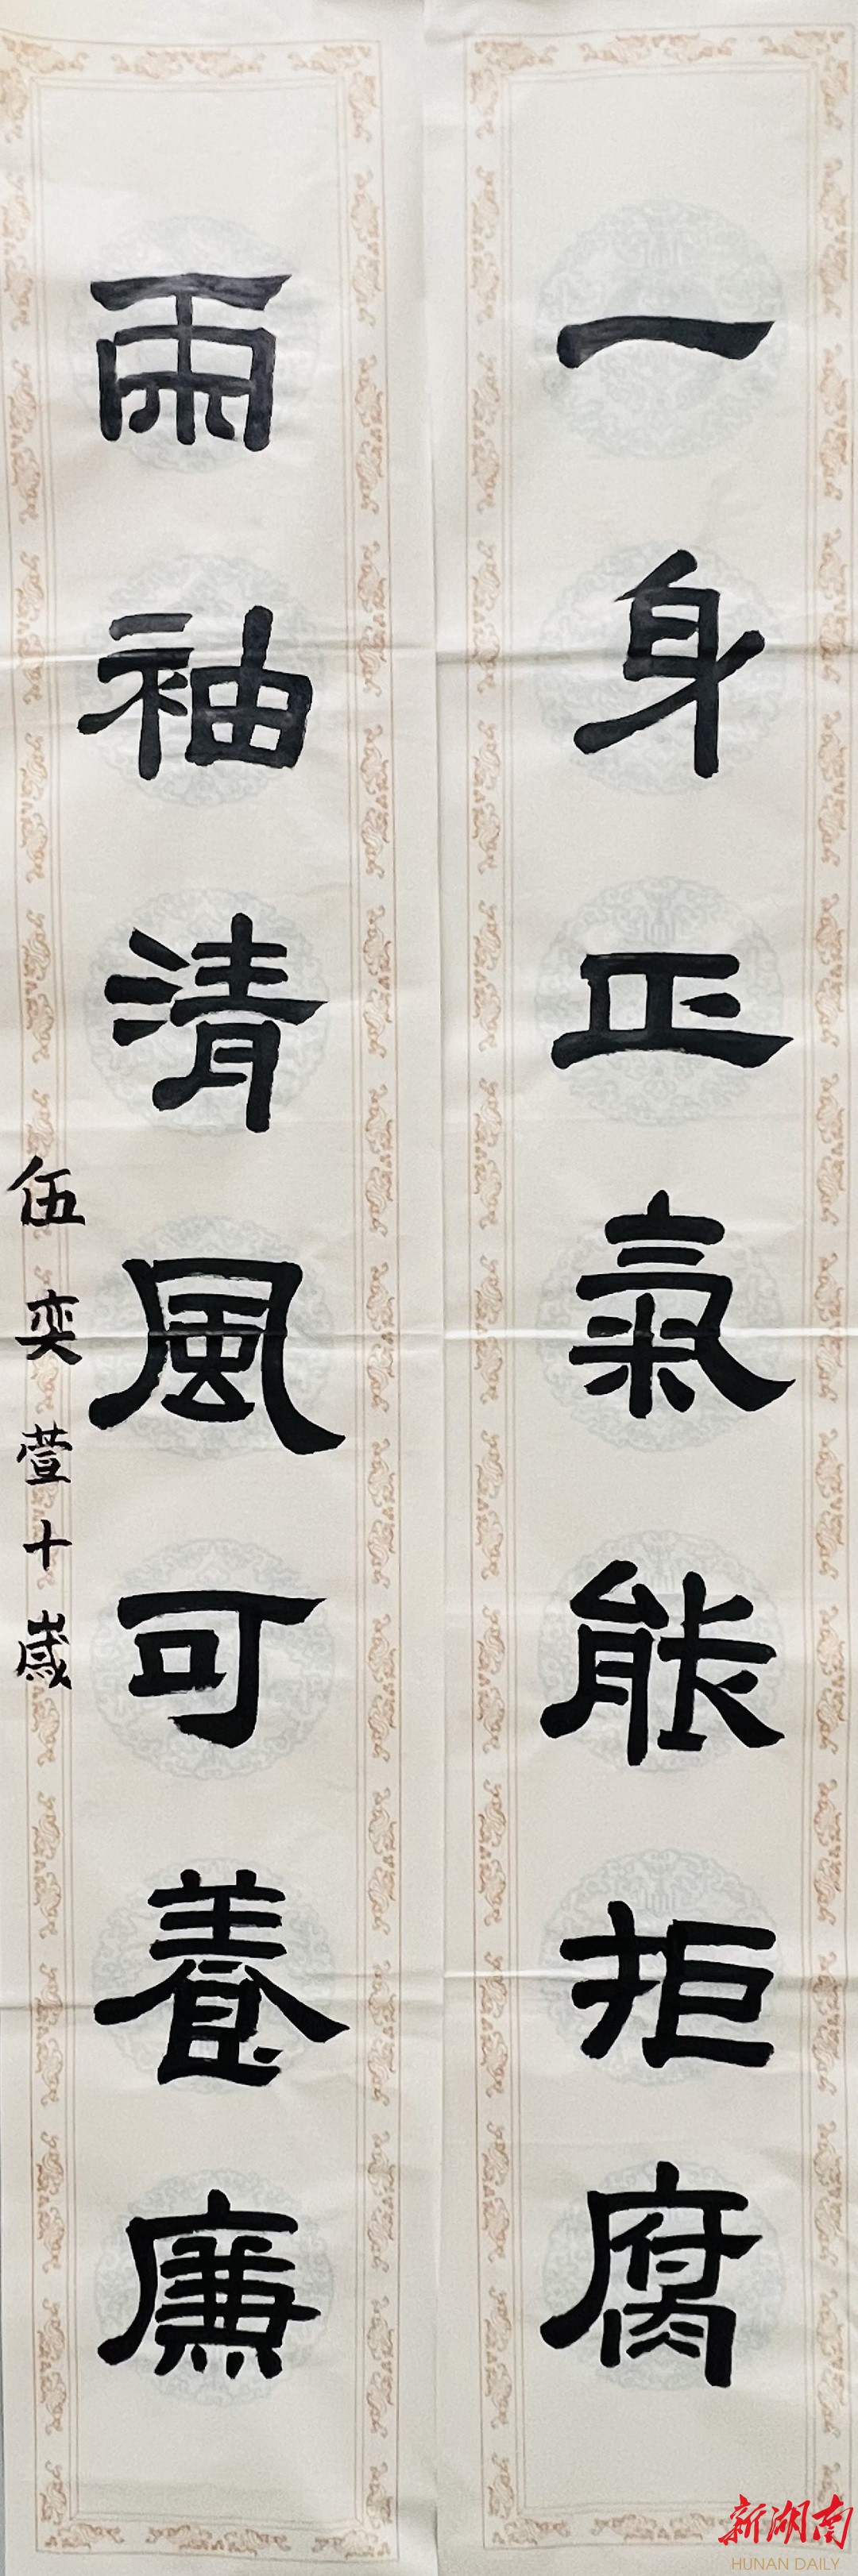 一身正氣能拒腐
兩袖清風可養廉
伍奕萱十歲
新湖南
HUNAN DAILY